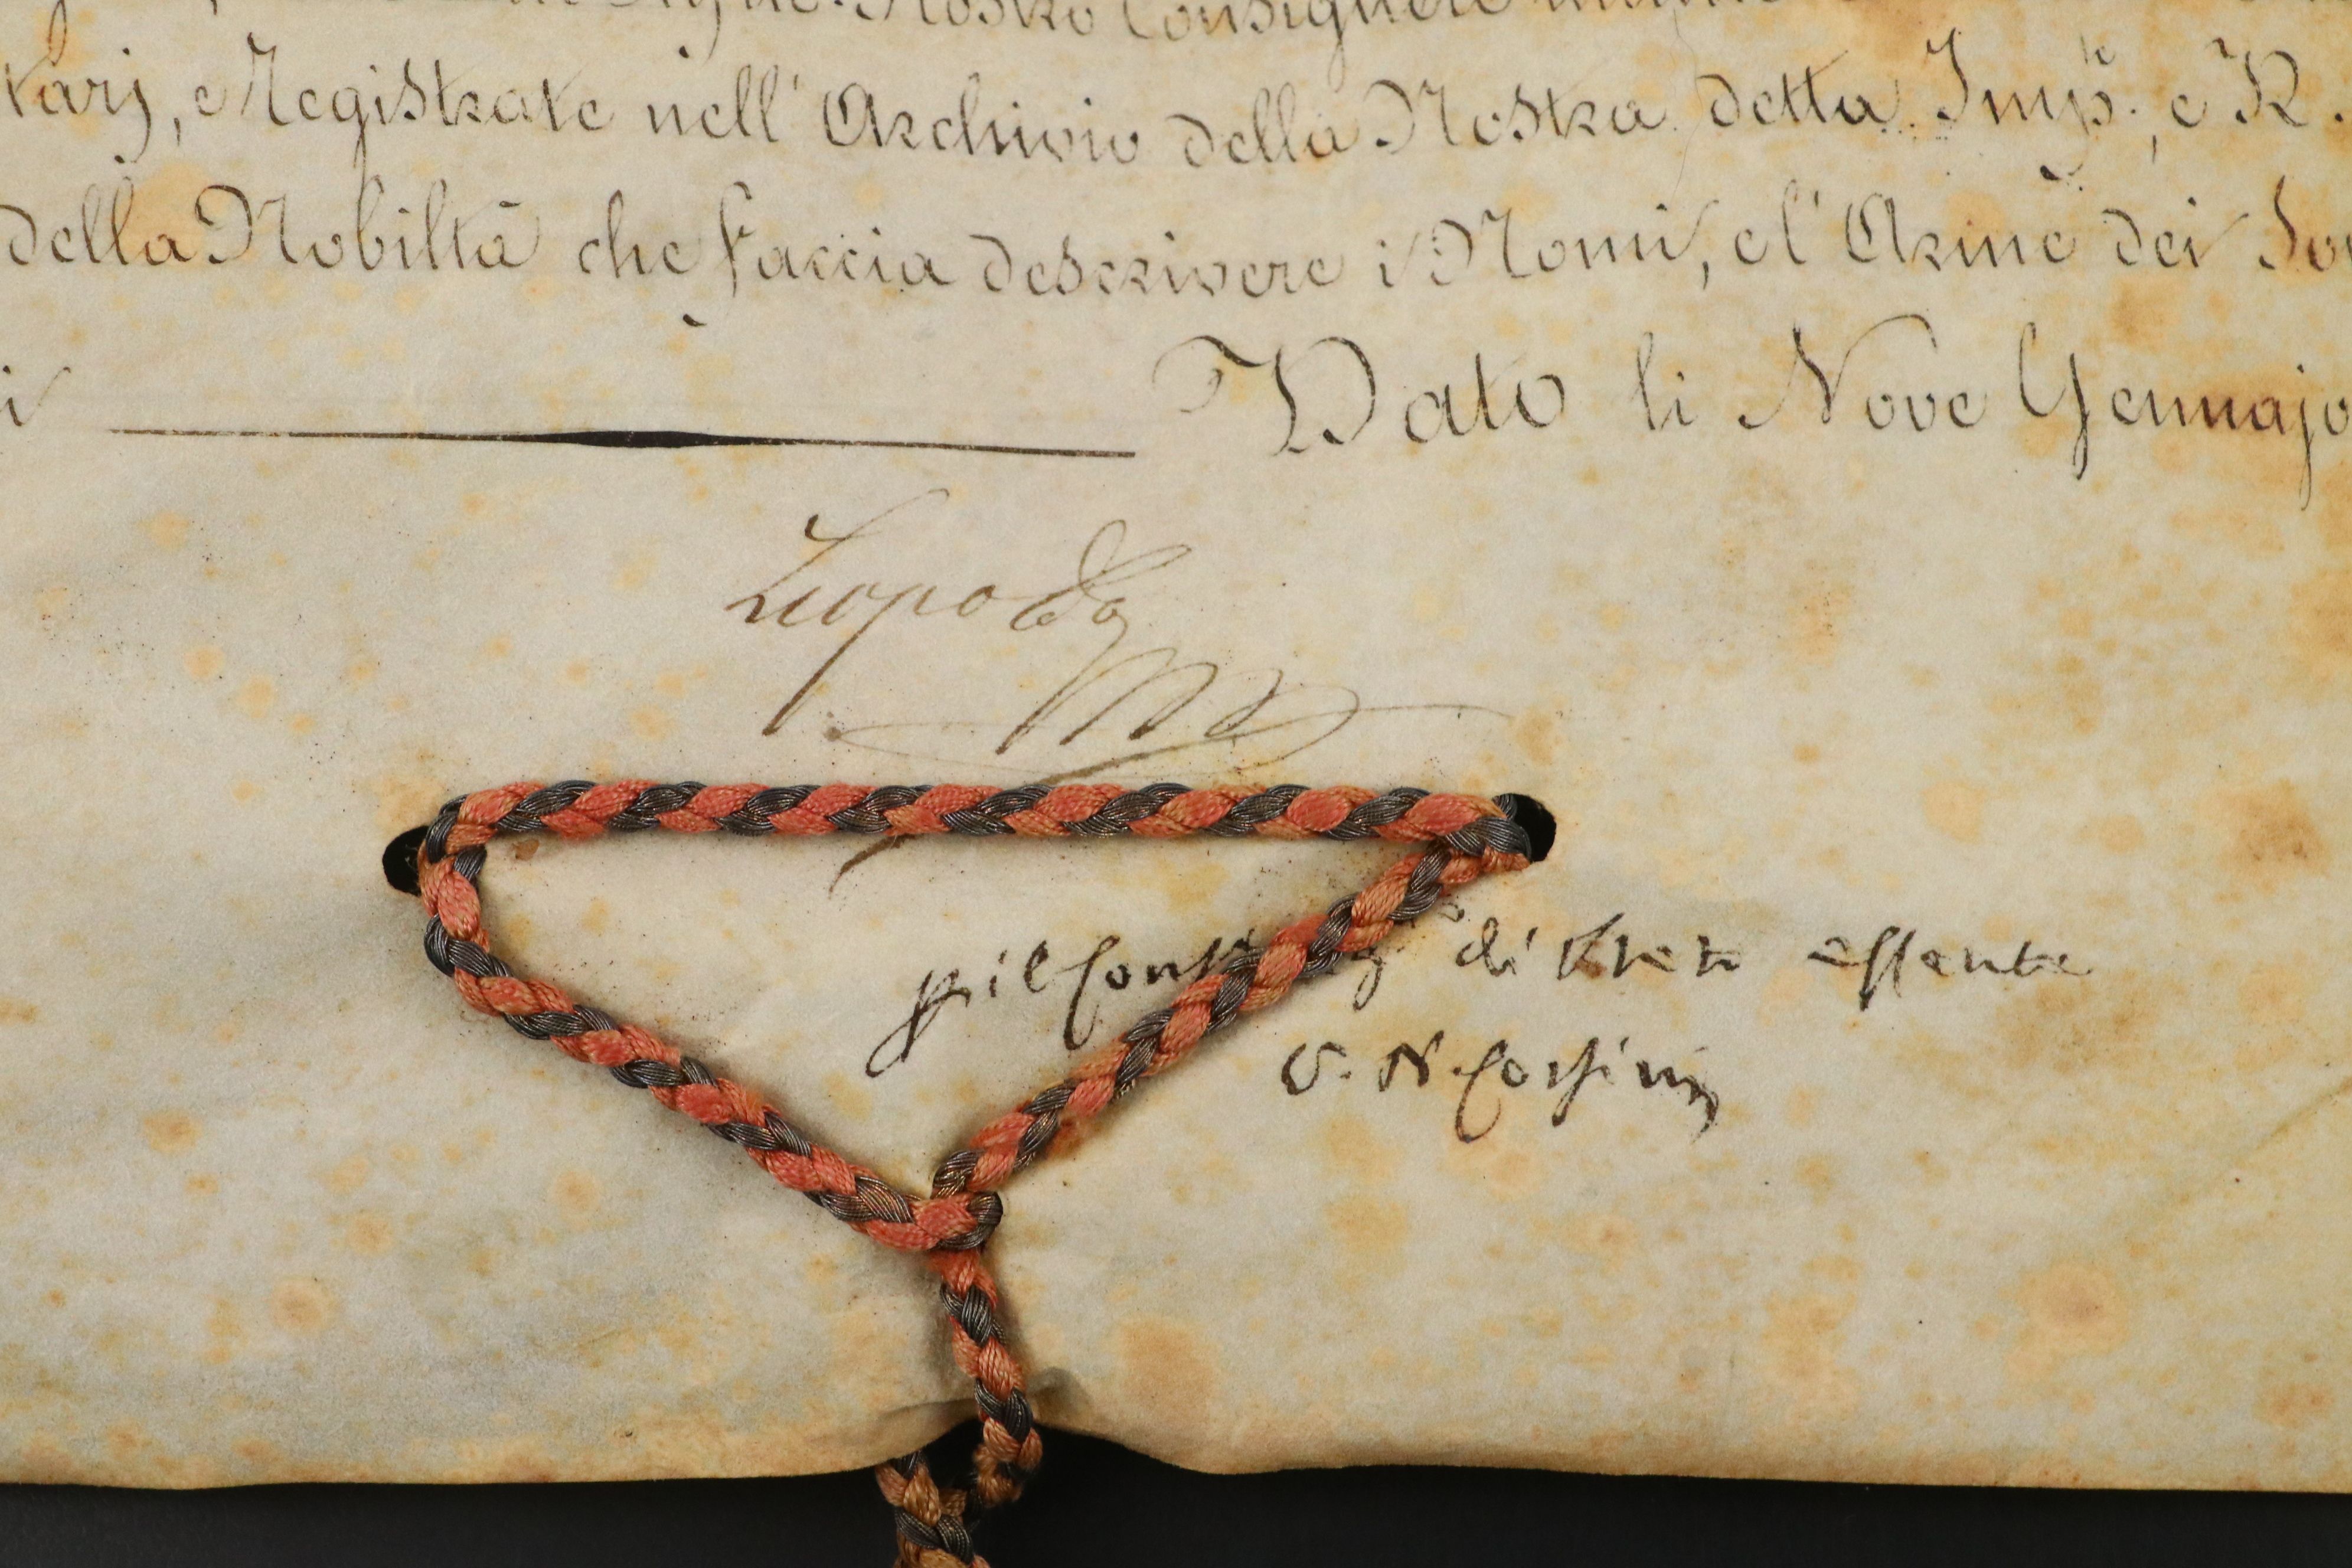 Nostro Consigliere
tarj, e Registrate nell' Archivio della Nostra detta Imp.le, e R.
della Nobiltà che faccia descrivere i Nomi, e l' Arme dei
i Dato li Nove Gennajo
Leopoldo
p il Cons di Stato assente
V. N. Corsini